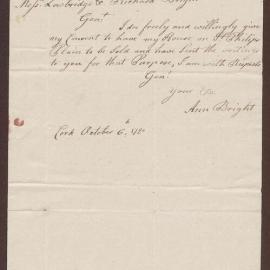 Mess. Lowbridge & Richard Bright
Gent
I do freely and willingly give
my Consent to have my House on St Philips
Plain to be Sold and have Sent the writings
to you for that Purpose, I am with Respects
Gent
Your
Ann Bright
Cork October 6th